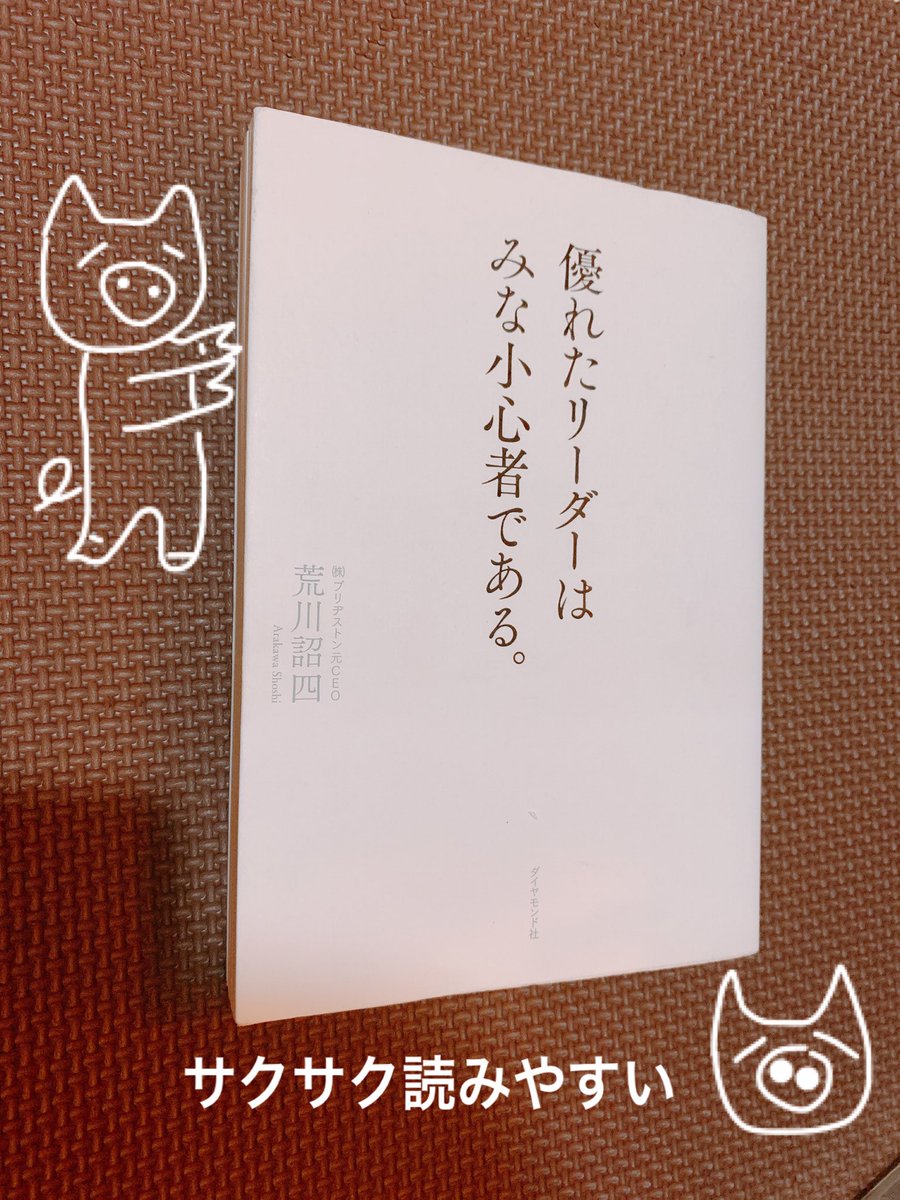 優れたリーダーは
みな小心者である。
㈱ブリヂストン元CEO
荒川詔四
Arakawa Shoshi
ダイヤモンド社
サクサク読みやすい